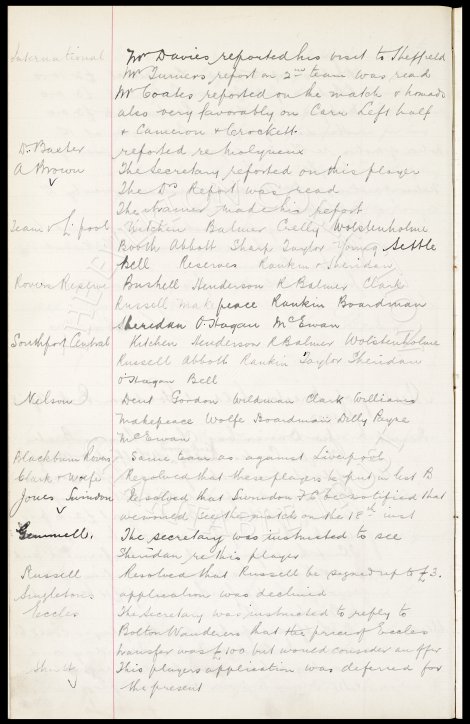 International Mr Davies reported his visit to Sheffield
Mr Turners report on 2nd team was read
Mr Coates reported on the match &
also very favorably on Carr Left half
& Cameron & Crockett
Dr Baxter reported re Molyneux
A Brown The Secretary reported on this player
The Drs Report was read
The Trainer made his report
Team v L'pool Kitchen Balmer Crelly Wolstenholme
Booth Abbott Sharp Taylor Young Settle
Bell Reserves Rankin & Sheridan
Rovers Reserve Bushell Henderson R Balmer Clark
Russell Makepeace Rankin Boardman
Sheridan O'Hagan McEwan
Southport Central Kitchen Henderson R Balmer Wolstenholme
Russell Abbott Rankin Taylor Sheridan
O'Hagan Bell
Nelson Dent Gordon Wildman Clark Williams
Makepeace Wolfe Boardman Dilly
McEwan
Blackburn Rovers Same team as against Liverpool
Clark & Wolfe Resolved that these players be put on list B
Jones Swindon Resolved that Swindon be notified that
we would see the match on the 18th inst
Gemmell. The secretary was instructed to see
Sheridan re this player
Russell Resolved that Russell be signed up to £3.
Singletons application was declined
Eccles The Secretary was instructed to reply to
Bolton Wanderers that the price of Eccles
transfer was £100 but would consider an offer
This players application was deferred for
the present